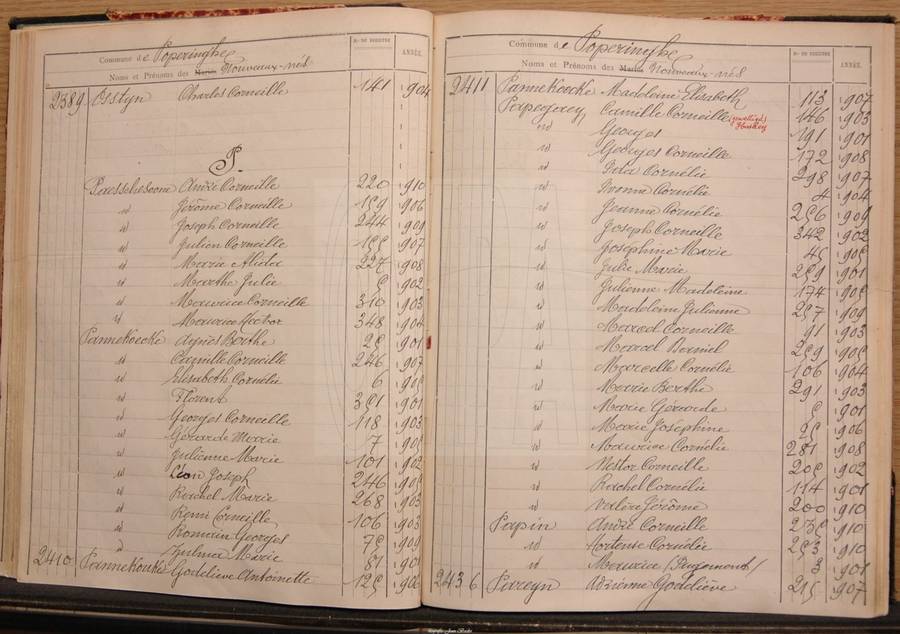 Commune de Poperinghe
Nos DE REGISTRE
ANNÉE.
Noms et Prénoms des Mariés Nouveaux-nés
2389 Osstyn Charles Corneille 141 904
P.
Paesschesoone André Corneille 220 910
id Jérôme Corneille 159 906
id Joseph Corneille 244 909
id Julien Corneille 155 907
id Marie Alida 227 908
id Marthe Julie 5 902
id Maurice Corneille 310 903
id Maurice Hector 348 904
Pannekoecke Agnes Berthe 25 901
id Camille Corneille 246 907
id Elisabeth Cornélie 6 905
id Florent 351 901
id Georges Corneille 118 903
id Gérarde Marie 7 905
id Julienne Marie 101 902
id Léon Joseph 246 905
id Rachel Marie 268 903
id Remi Corneille 106 903
id Romain Georges 75 909
id Zulma Marie 87 901
2410 Pannekoucke Godelieve Antoinette 125 906
Commune de Poperinghe
Nos DE REGISTRE
ANNÉE.
Noms et Prénoms des Mariés Nouveaux-nés
2411 Pannekoecke Madeleine Elisabeth 113 907
Papegaey Camille Corneille 146 903
id Georges 191 901
id Georges Corneille 172 908
id Irma Cornélie 298 907
id Ivonne Cornélie 4 904
id Jeanne Cornélie 256 909
id Joseph Corneille 342 902
id Joséphine Marie 45 905
id Julie Marie 259 901
id Julienne Madeleine 174 905
id Madeleine Julienne 257 909
id Marcel Corneille 91 903
id Marcel Daniel 259 905
id Marcelle Cornélie 106 904
id Marie Berthe 291 903
id Marie Gérarde 5 901
id Marie Joséphine 25 906
id Maurice Cornélie 281 908
id Nestor Corneille 205 902
id Rachel Cornélie 114 901
id Valère Jérôme 200 910
Papin André Corneille 235 910
id Hortense Cornélie 253 910
id Maurice 3 901
2436 Pareyn Adrienne Godelieve 215 907